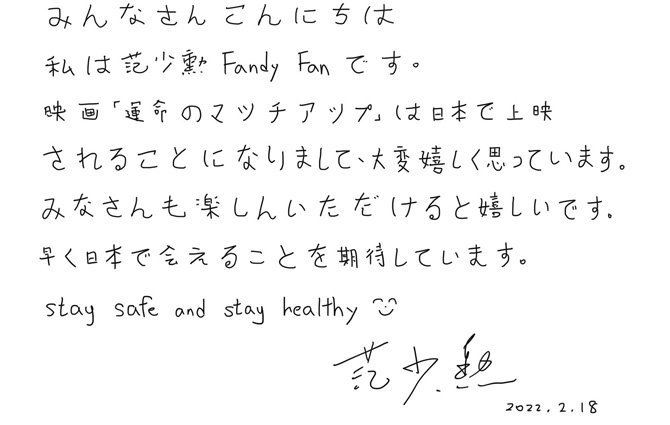 みんなさんこんにちは
私は范少勲 Fandy Fan です。
映画「運命のマッチアップ」は日本で上映
されることになりまして、大変嬉しく思っています。
みなさんも楽しんいただけると嬉しいです。
早く日本で会えることを期待しています。
stay safe and stay healthy
范少勲
2022.2.18